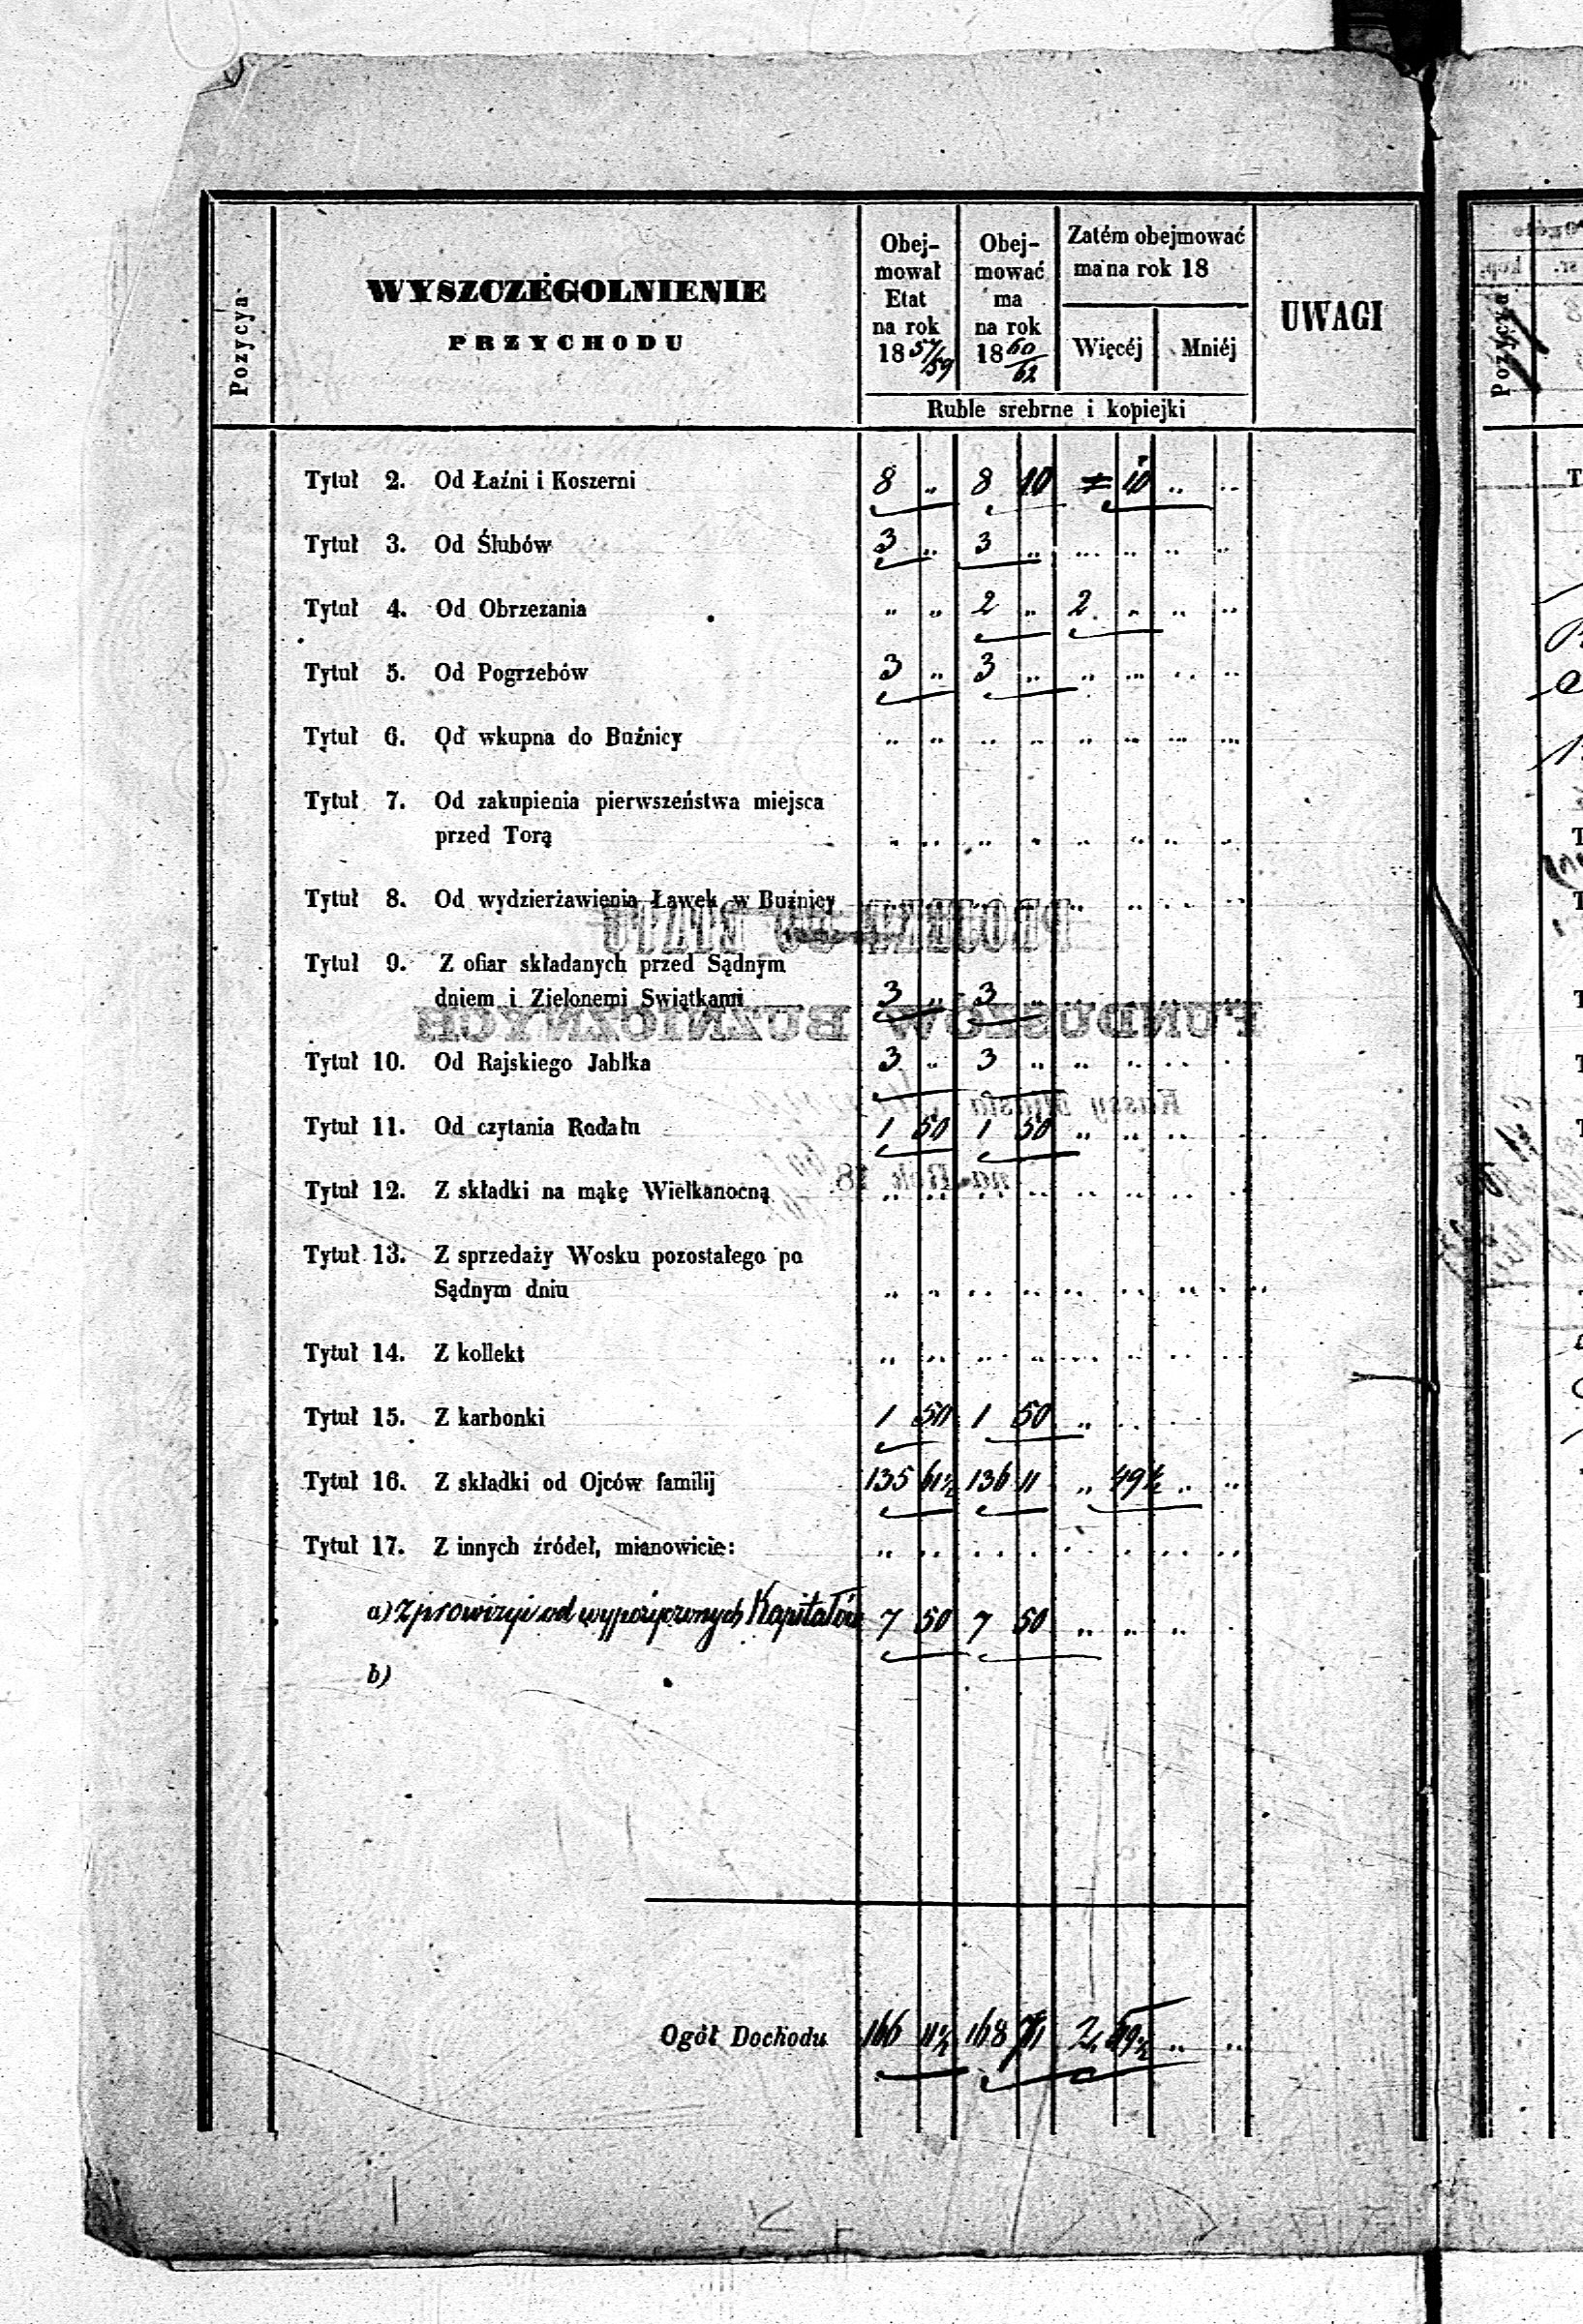 Pozycya
WYSZCZEGOLNIENIE
PRZYCHODU
Obej-
mował
Etat
na rok
18 57/59
Obej-
mować
ma
na rok
18 60/62
Zatém obejmować
ma na rok 18
Więcéj Mniéj
UWAGI
Ruble srebrne i kopiejki
Tytuł 2. Od Łaźni i Koszerni 8 „ 8 10 „ 10 „ „
Tytuł 3. Od Ślubów 3 „ 3 „ „ „ „ „
Tytuł 4. Od Obrzezania „ „ 2 „ 2 „ „ „
Tytuł 5. Od Pogrzebów 3 „ 3 „ „ „ „ „
Tytuł 6. Od wkupna do Buźnicy „ „ „ „ „ „ „ „
Tytuł 7. Od zakupienia pierwszeństwa miejsca
przed Torą „ „ „ „ „ „ „ „
Tytuł 8. Od wydzierżawienia Ławek w Buźnicy „ „ „ „ „ „ „ „
Tytuł 9. Z ofiar składanych przed Sądnym
dniem i Zielonemi Swiątkami 3 „ 3 „ „ „ „ „
FUNDUSZÓW BUZNICZNYCH
Tytuł 10. Od Rajskiego Jabłka 3 „ 3 „ „ „ „ „
Kassy Miasta
Tytuł 11. Od czytania Rodału 1 50 1 50 „ „ „ „
na Rok 18
Tytuł 12. Z składki na mąkę Wielkanocną „ „ „ „ „ „ „ „
Tytuł 13. Z sprzedaży Wosku pozostałego po
Sądnym dniu „ „ „ „ „ „ „ „
Tytuł 14. Z kollekt „ „ „ „ „ „ „ „
Tytuł 15. Z karbonki 1 50 1 50 „ „ „ „
Tytuł 16. Z składki od Ojców familij 135 61½ 136 11 „ 49½ „ „
Tytuł 17. Z innych źródeł, mianowicie: „ „ „ „ „ „ „ „
a) z prowizyi od wypożyczonych Kapitałów 7 50 7 50 „ „ „ „
b)
Ogół Dochodu 166 11½ 168 71 2 59½ „ „